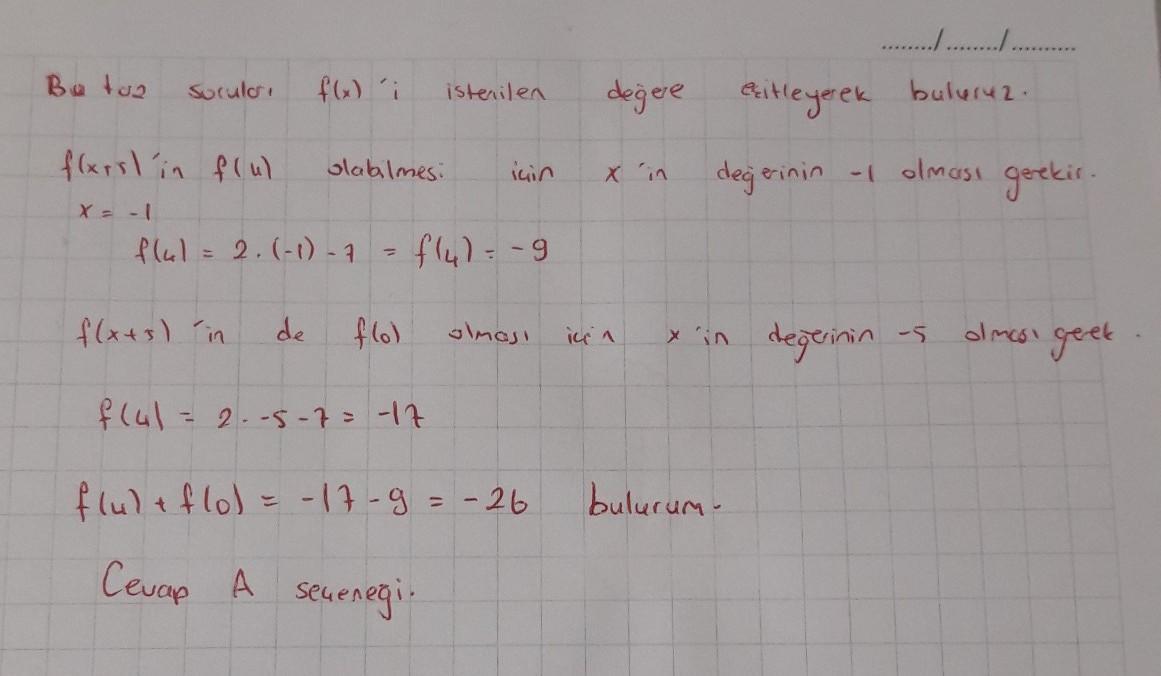 ......../......../...........
Bu tarz soruları f(x)'i istenilen değere eşitleyerek buluruz.
f(x+5)'in f(4) olabilmesi için x'in değerinin -1 olması gerekir.
x = -1
f(4) = 2.(-1) - 7 = f(4) = -9
f(x+5)'in de f(0) olması için x'in değerinin -5 olması gerek.
f(4) = 2. -5 - 7 = -17
f(4) + f(0) = -17 - 9 = -26 bulurum.
Cevap A seçeneği.